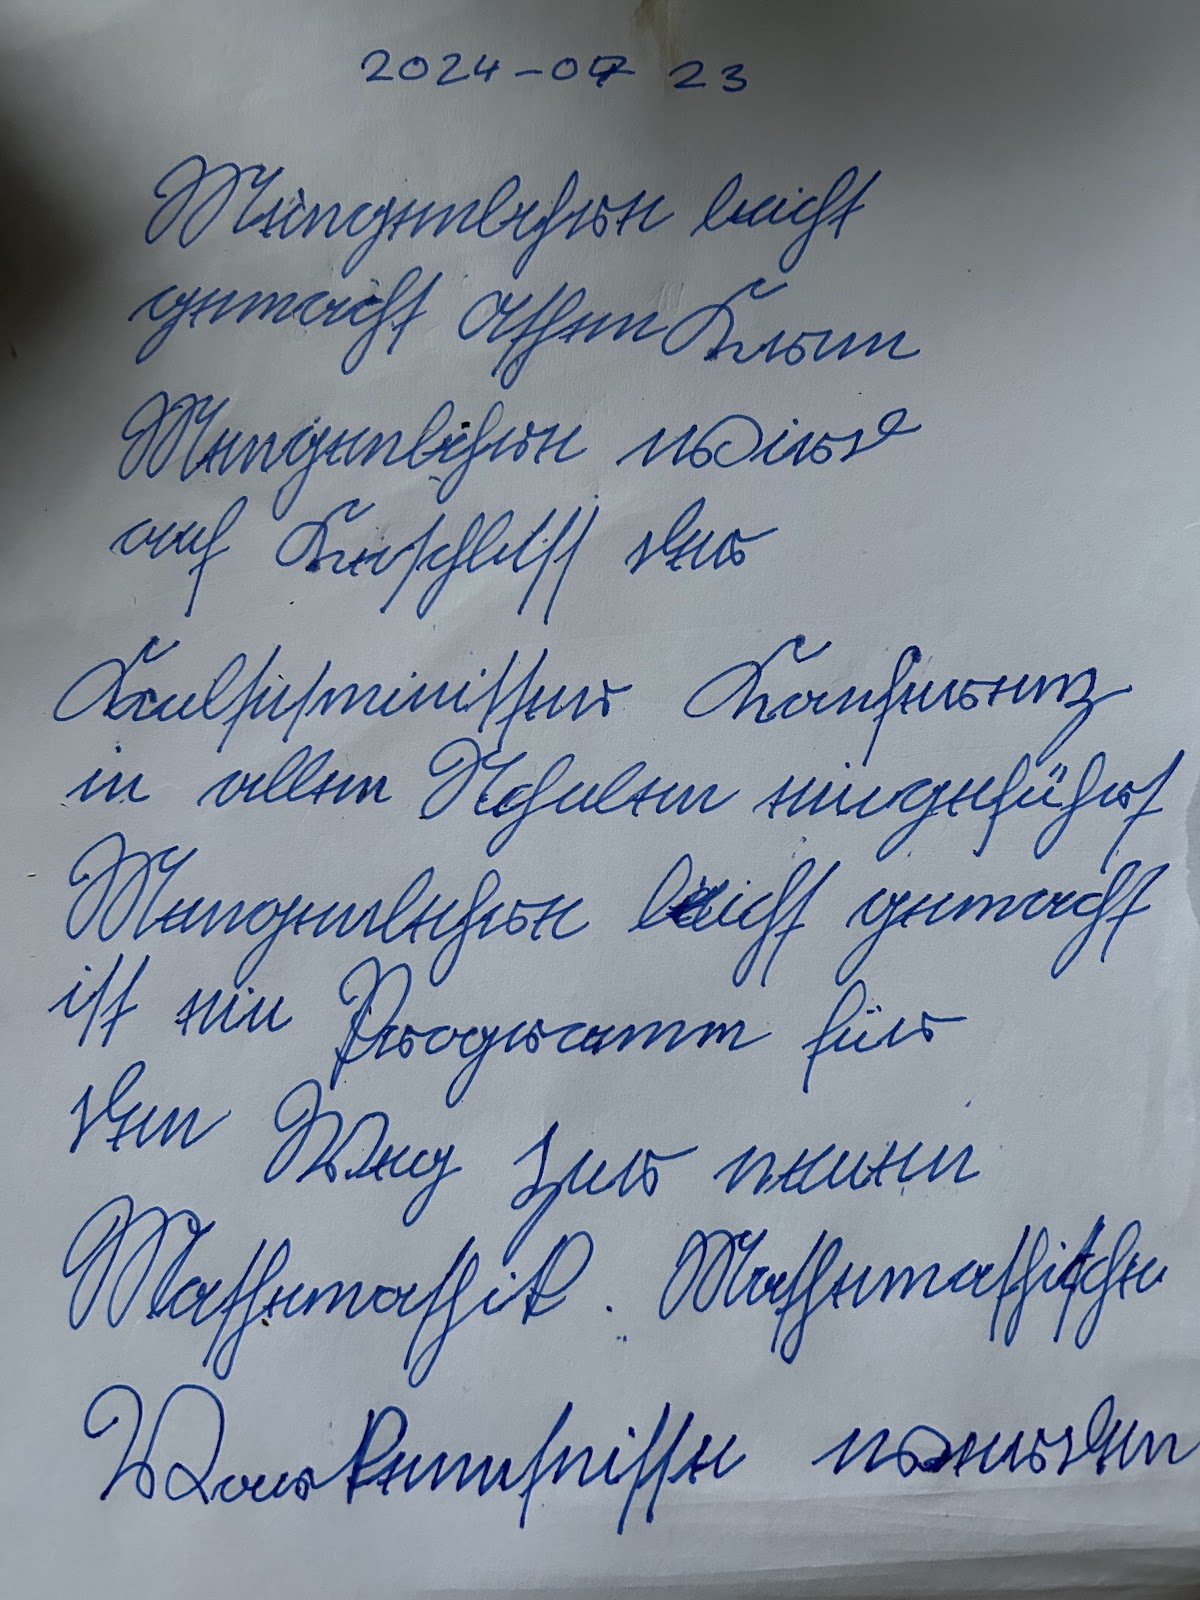 2024-07 23
Mengenlehre leicht
gemacht
Mengenlehre wird
auf Beschluss der
Kultusminister Konferenz
in allen Schulen eingeführt
Mengenlehre leicht gemacht
ist ein Programm für
den Weg zur neuen
Mathematik. Mathematische
Vorkenntnisse werden